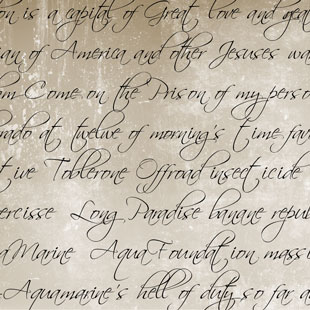 on is a capital of Great love and gea
an of America and other Jesuses wa
om Come on the Prison of my perso
rado at twelve of morning's time fav
tive Toblerone Offroad insecticide
ercisse Long Paradise banane repu
aMarine AquaFoundation massi
Aquamarine's hell of duty so far a